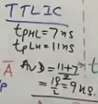 TTLIC
tpHL=7ns
tpLH=11ns
A
AvD=11+7
18/2=9ns.